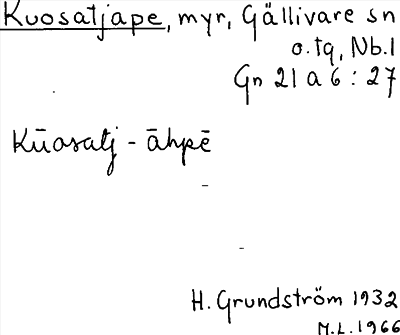 Kuosatjape, myr, Gällivare sn
o. tg, Nb. l
Gn 21 a 6 : 27
Kūosatj - āhpē
H. Grundström 1932
M.L. 1966